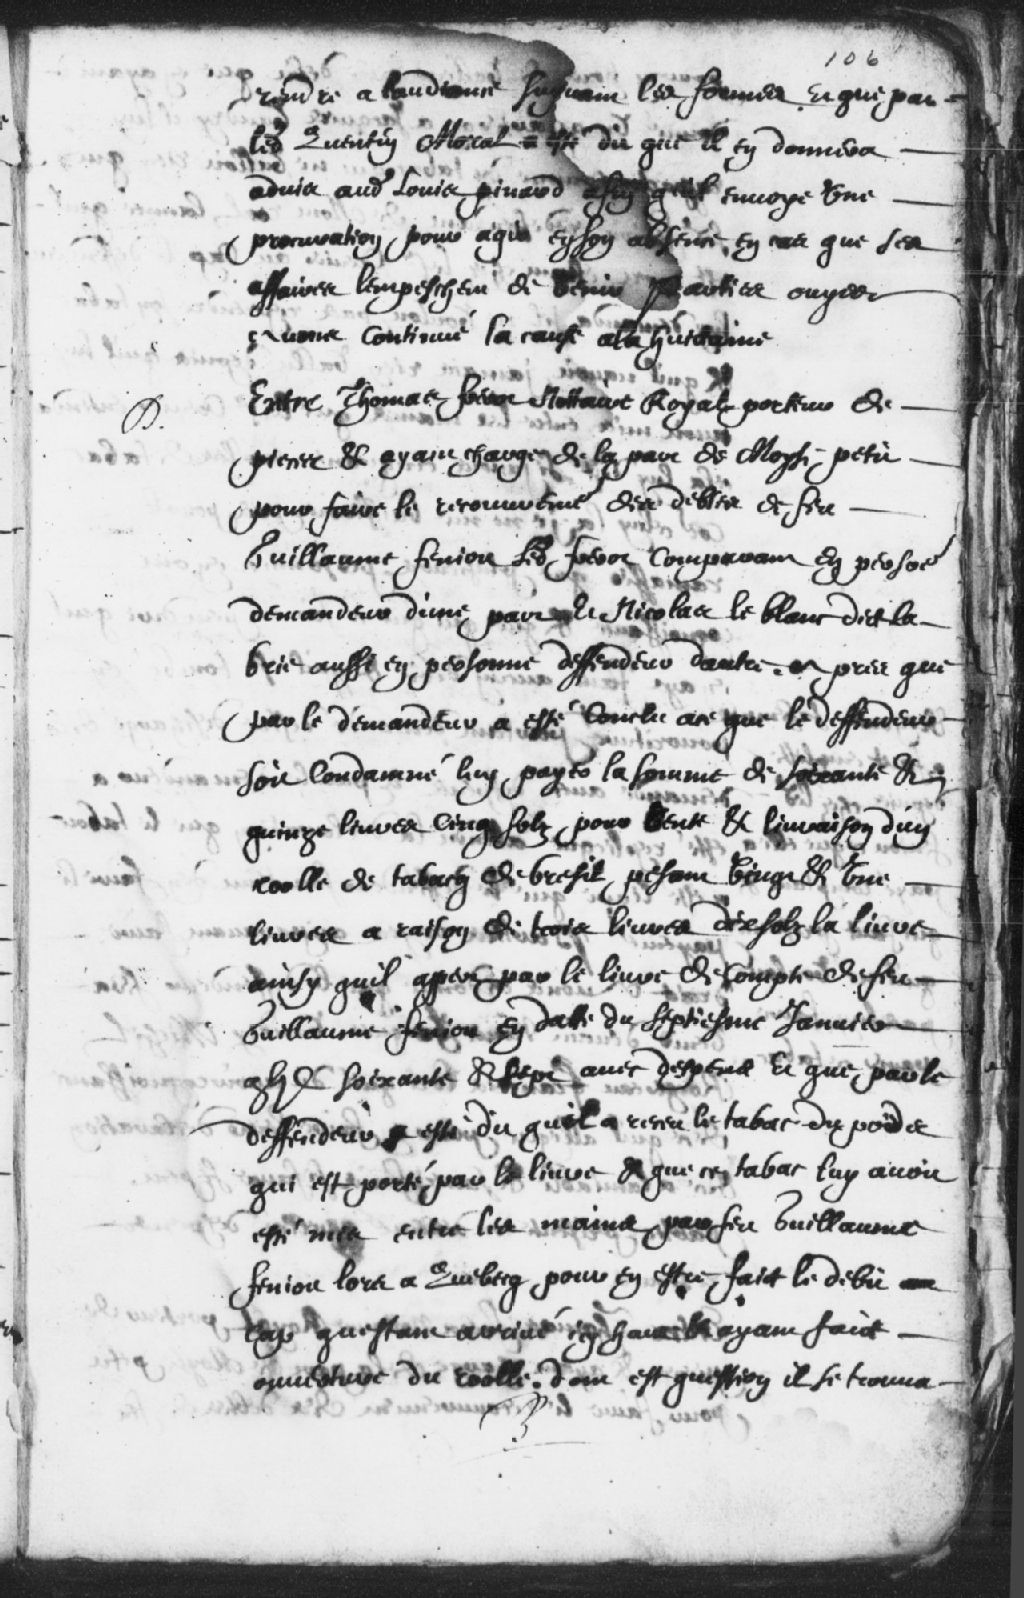 106
rendre a laudiance suyvant les formes Et que par
led Quentin Moral a esté dit que il en donnera
advis aud Louis pinard afin quil envoye Une
procuration pour agir en son absence en cas que ses
affaires lempeschent de Venir parties ouyes
Avons Continué la cause a la huictaine
D.
Entre Thomas frérot Nottaire Royal porteur de
pieces & ayant charge de la part de Moyse petit
pour faire le recouvremt des debtes de feu
Guillaume feniou led frérot Comparant En persoe
demandeur dune part Et Nicolas le blanc dict la
brie aussi en personne deffendeur dautre apres que
par le demandeur a esté Conclu ace que le deffendeur
soit Condamné luy payer la somme de soixante &
quinze livres Cinq solz pour Vente & livraison dun
roolle de tabacq de bresil pesant Vingt & Une
livres a raison de trois livres dix solz la livre
ainsy quil apert par le livre de Compte de feu
Guillaume feniou en datte du septiesme Janvier
soixante & sept avec despens Et que par le
deffendeur a esté dit quil a receu le tabac du poids
qui est porté par le livre & que ce tabac luy avoit
esté mis entre les mains par feu Guillaume
feniou lors a Quebecq pour en estre faict le debit au
Cap questant arrivé en hault & ayant faict
ouverture du roolle dont est question il se trouva